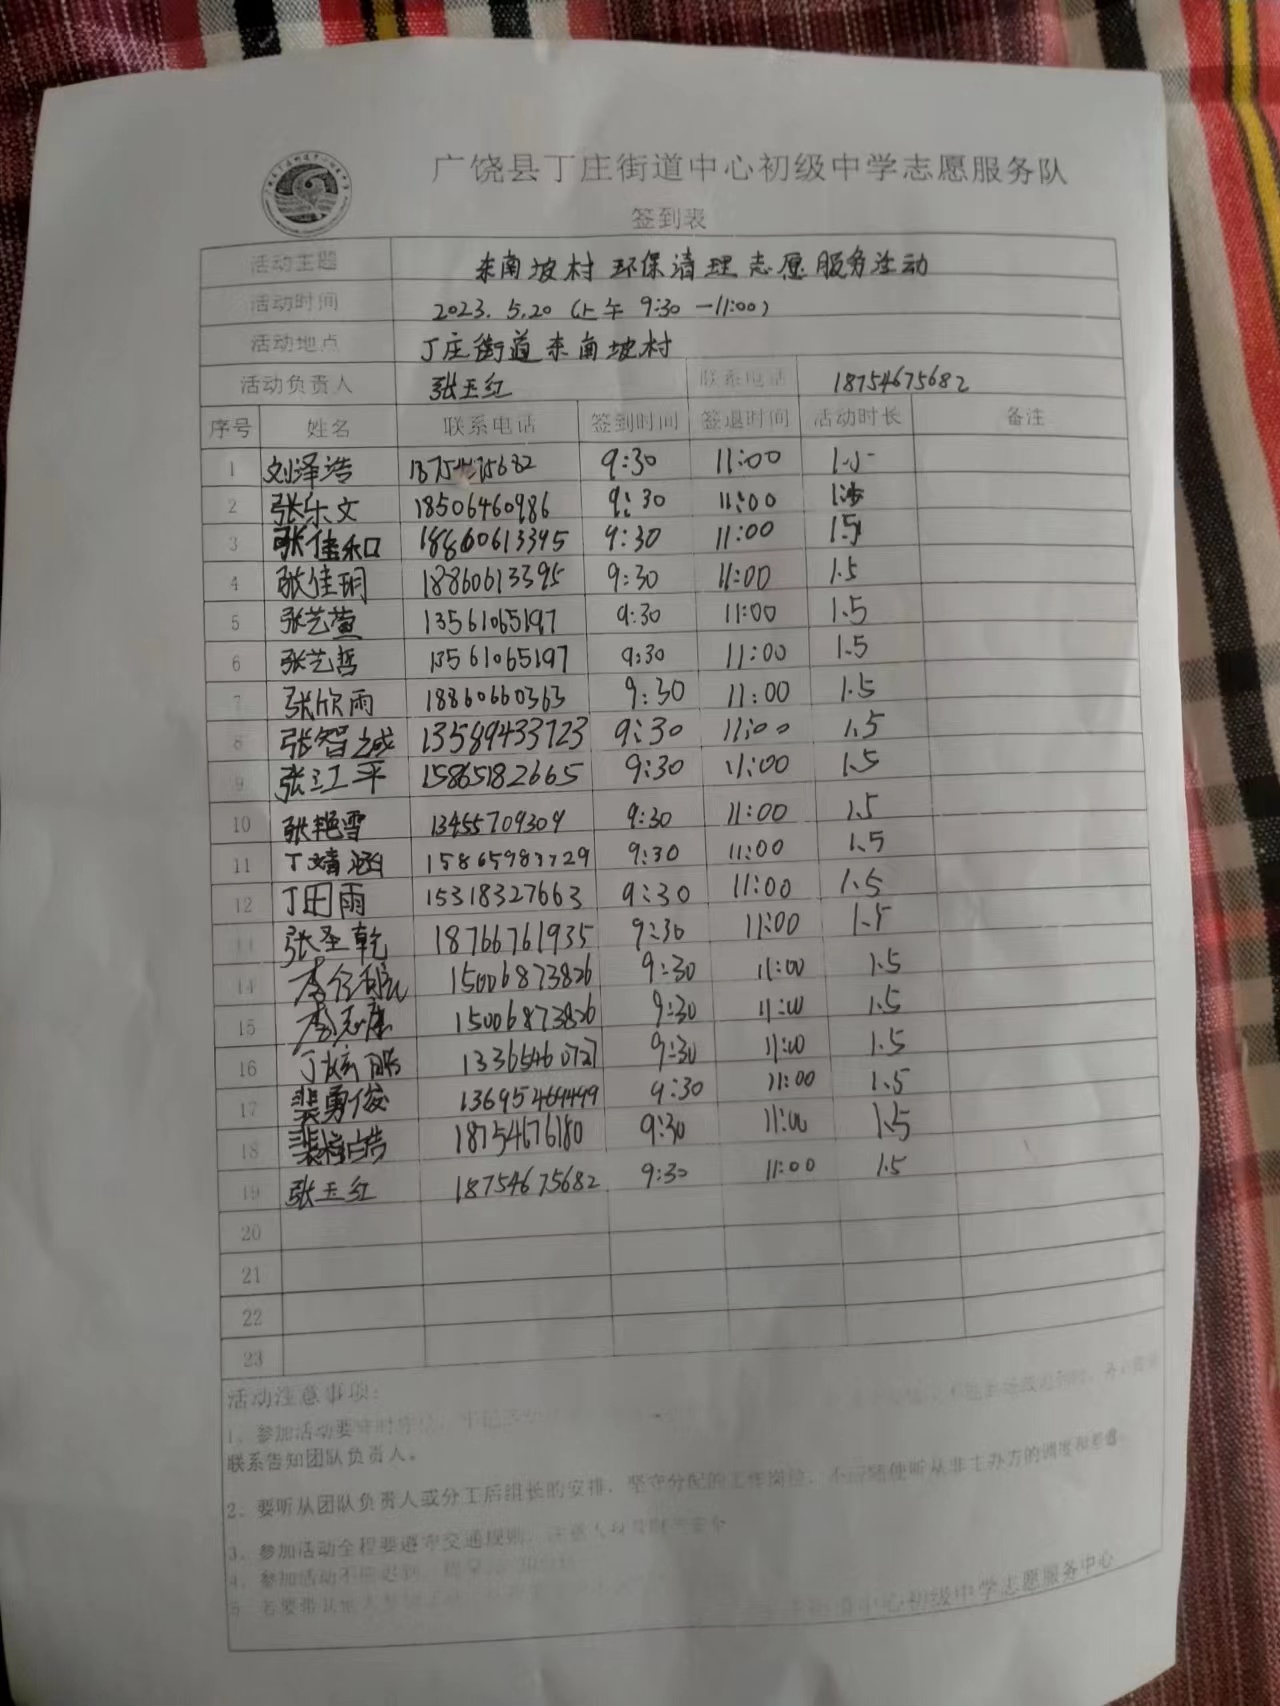 广饶县丁庄街道中心初级中学志愿服务队
签到表
活动主题 东南坡村环保清理志愿服务活动
活动时间 2023.5.20(上午 9:30—11:00)
活动地点 丁庄街道东南坡村
活动负责人 张玉红 联系电话 18754675682
序号 姓名 联系电话 签到时间 签退时间 活动时长 备注
1 刘泽浩 18754675682 9:30 11:00 1.5
2 张乐文 18506460986 9:30 11:00 1.5
3 张佳和 18860613395 9:30 11:00 1.5
4 张佳玥 18860613395 9:30 11:00 1.5
5 张艺萱 13561065197 9:30 11:00 1.5
6 张艺哲 13561065197 9:30 11:00 1.5
7 张欣雨 18860660363 9:30 11:00 1.5
8 张智城 13589433723 9:30 11:00 1.5
9 张江平 15865182665 9:30 11:00 1.5
10 张艳雪 13455709309 9:30 11:00 1.5
11 丁婧涵 9:30 11:00 1.5
12 丁田雨 15318327663 9:30 11:00 1.5
13 张圣乾 18766761935 9:30 11:00 1.5
14 李 15006873826 9:30 11:00 1.5
15 李志康 15006873826 9:30 11:00 1.5
16 丁 13365460727 9:30 11:00 1.5
17 裴勇俊 13695469499 9:30 11:00 1.5
18 裴 18754676180 9:30 11:00 1.5
19 张玉红 18754675682 9:30 11:00 1.5
20
21
22
23
活动注意事项:
1、参加活动要
联系告知团队负责人。
2、要听从团队负责人或分工后组长的安排,坚守分配的工作岗位,不应随便听从非主办方的调度和
3、参加活动全程要遵守交通规则,
4、参加活动不
5、若要带
中心初级中学志愿服务中心